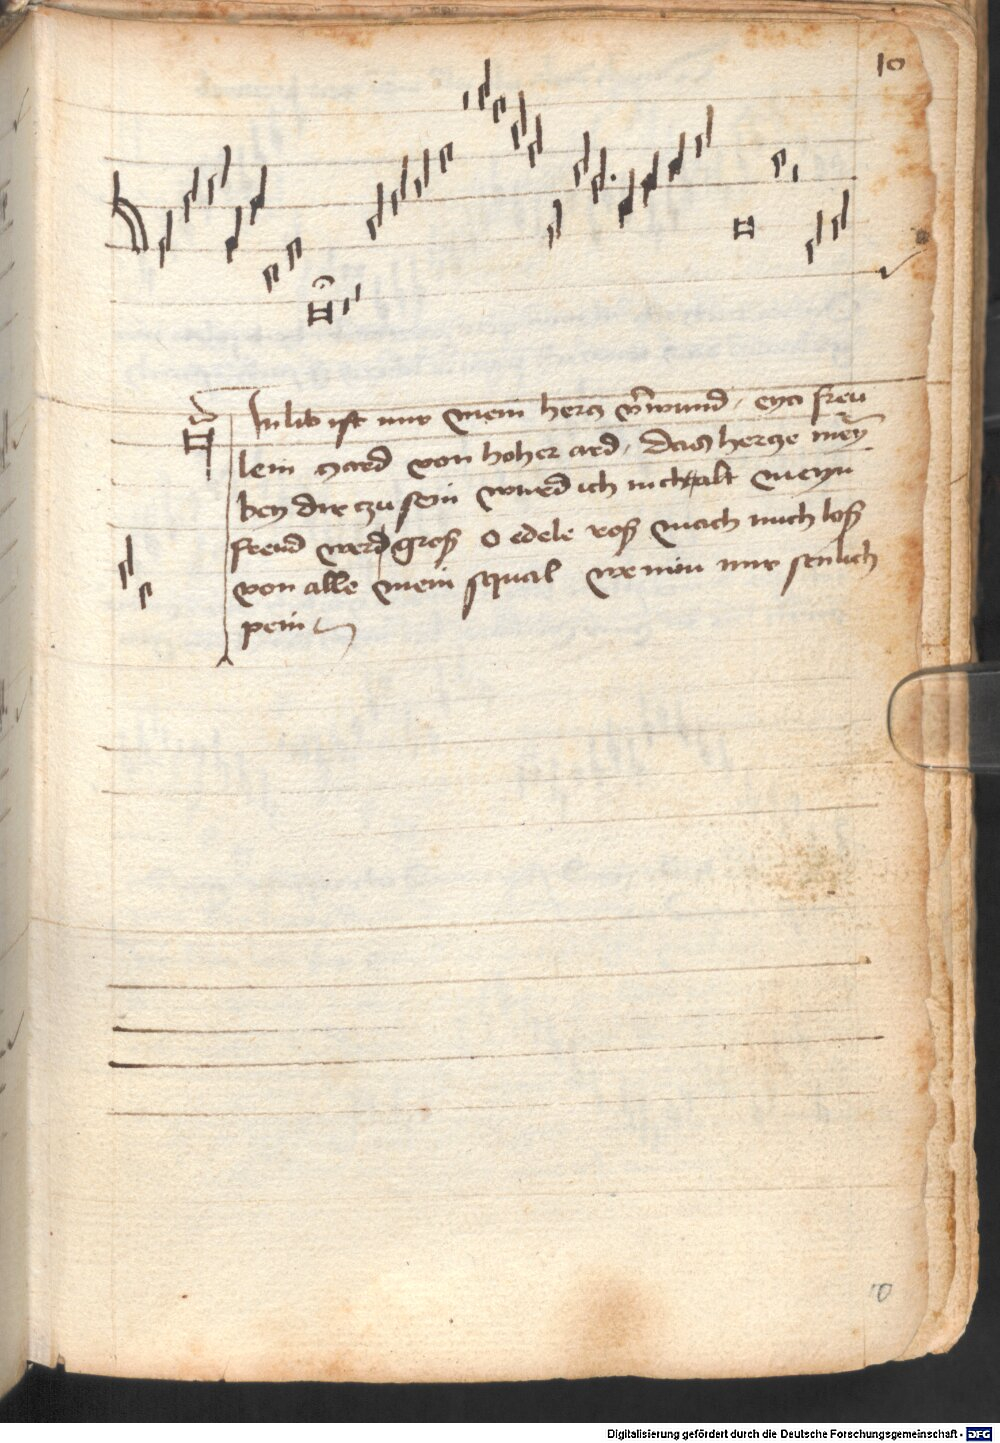 10
In lib ist mir mein hercz v̄wund / eya freu
lein czard von hoher ard / das hercze mey̅
bey dir czu sein wurd ich nicht alt meyn
freud werd groß O edele roß mach mich loß
von alle mein squal we nim mir senlich
pein
10
Digitalisierung gefördert durch die Deutsche Forschungsgemeinschaft - DFG